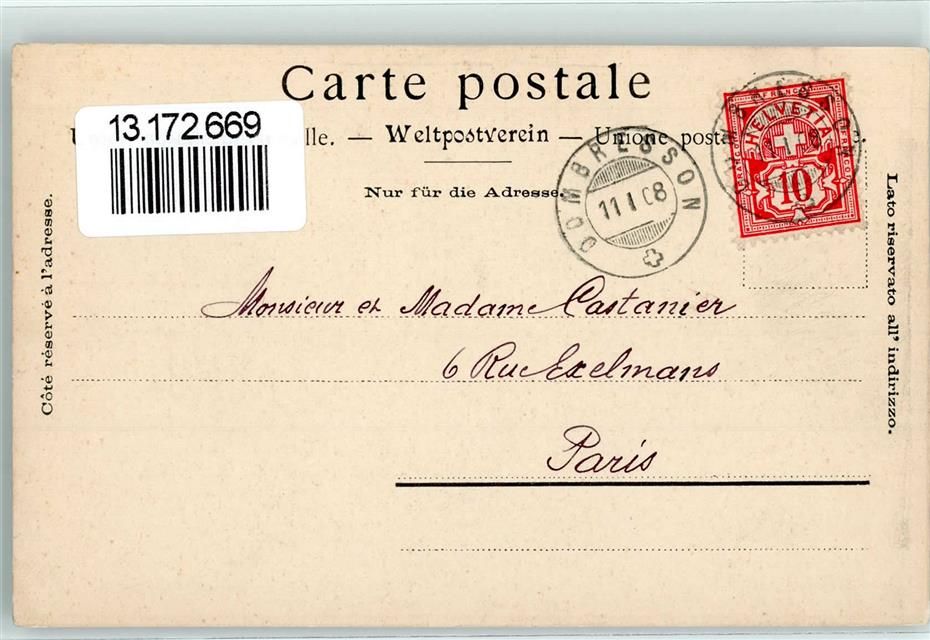 Carte postale
13.172.669
lle. — Weltpostverein — Unione posta
Nur für die Adresse.
DOMBRESSON
11 I 08
FRANCO
HELVETIA
10
Côté réservé à l'adresse.
Lato riservato all' indirizzo.
Monsieur et Madame Castanier
6 Rue Exelmans
Paris